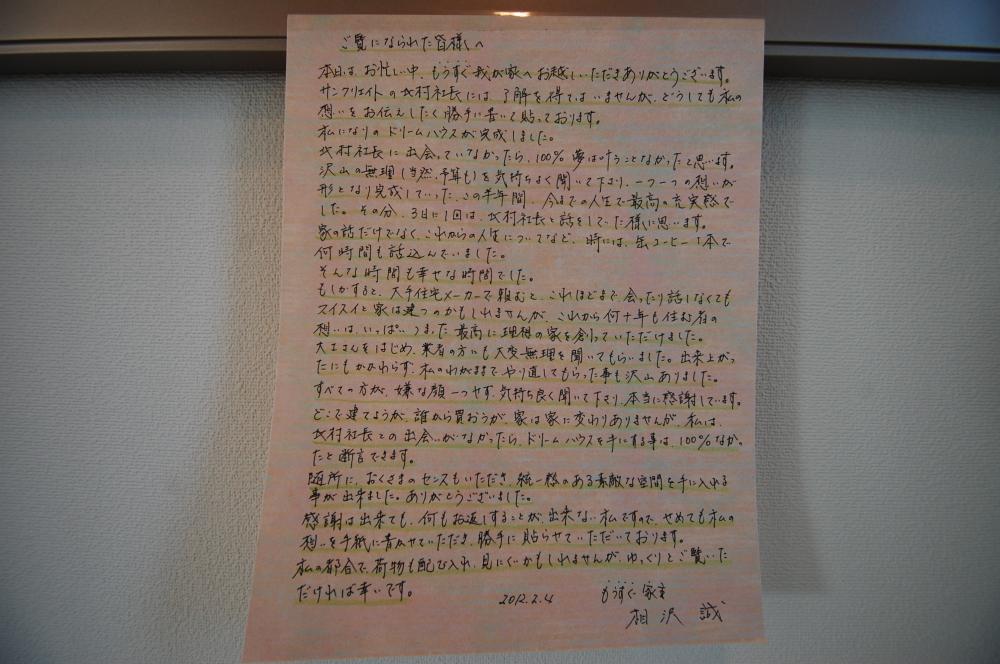 ご覧になられた皆様へ
本日は、お忙しい中、もうすぐ我が家へお越しいただきありがとうございます。
サンクリエイトの北村社長には、了解を得てはいませんが、どうしても私の
想いをお伝えしたく勝手に書いて貼っております。
私になりのドリームハウスが完成しました。
北村社長に出会っていなかったら、100%夢は叶うことなかったと思います。
沢山の無理(当然、予算も)を気持ちよく聞いて下さり、一つ一つの想いが
形となり完成していった、この半年間、今までの人生で最高の充実感で
した。その分、3日に1回は、北村社長と話をしていた様に思います。
家の話だけでなく、これからの人生についてなど、時には、缶コーヒー1本で
何時間も話込んでいました。
そんな時間も幸せな時間でした。
もしかすると、大手住宅メーカーで頼むと、これほどまで、会ったり話しなくても
スイスイと家は建つのかもしれませんが、これから何十年も住む者の
想いは、いっぱいつまった最高に理想の家を創っていただけました。
大工さんをはじめ、業者の方にも大変無理を聞いてもらいました。出来上がっ
たにもかかわらず、私のわがままで、やり直してもらった事も沢山ありました。
すべての方が、嫌な顔一つせず、気持ち良く聞いて下さり、本当に感謝しています。
どこで建てようが、誰から買おうが、家は家に変わりありませんが、私は、
北村社長との出会いがなかったら、ドリームハウスを手にする事は、100%なかっ
たと断言できます。
随所に、おくさまのセンスもいただき、統一感のある素敵な空間を手に入れる
事が出来ました。ありがとうございました。
感謝は出来ても、何もお返しすることが、出来ない私ですので、せめても私の
想いを手紙に書かせていただき、勝手に貼らせていただいております。
私の都合で、荷物も配び入れ、見にくいかもしれませんが、ゆっくりとご覧いた
だければ幸いです。
2012.2.4 もうすぐ家主
相沢 誠